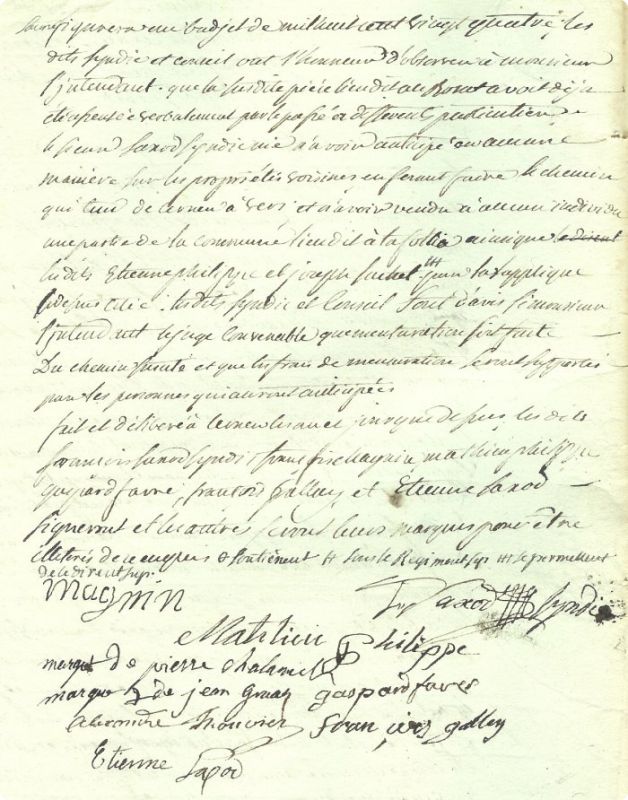 figurera au budjet de mil huit cent vingt quatre, les
dits syndic et conseil ont l'honneur d'observer à monsieur
l'jntendant que la susdite pièce lieudit au avoit déja
été verbalement par le passé a differents particuliers
le sieur Saxod syndic nie d'avoir anticipé en aucune
maniere sur les propriétés voisines en ferant faire le chemin
qui tend de cerneu à vers et d'avoir vendu à aucun individu
une partie de la commune lieudit à la ainsique le disent
lesdits Etienne philippe et joseph dans la supplique
. lesdits syndic et Conseil Sont d'avis si monsieur
l'jntendant le juge convenable que mensuration soit faite
Du chemin susdit et que les frais de mensuration seront supportés
par les personnes qui auront anticipées
fait et déliberé à les an et jour que dessus, les dits
francois Saxod syndic, Magnin mathieu philippe
gaspard favre, francois gallay, et Etienne Saxod
signeront et les autres feront leurs marques pour être
illiterés de ce enquis # Sous le Regiment # le permettent
de le dire
Magnin
Saxod Syndic
Mathieu Philippe
marque de pierre
marque de jean gaspard favre
alexandre francois gallay
Etienne Saxod